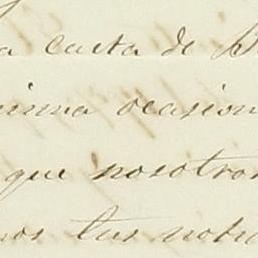 a carta de
ocasion
que nosotros
tus noti